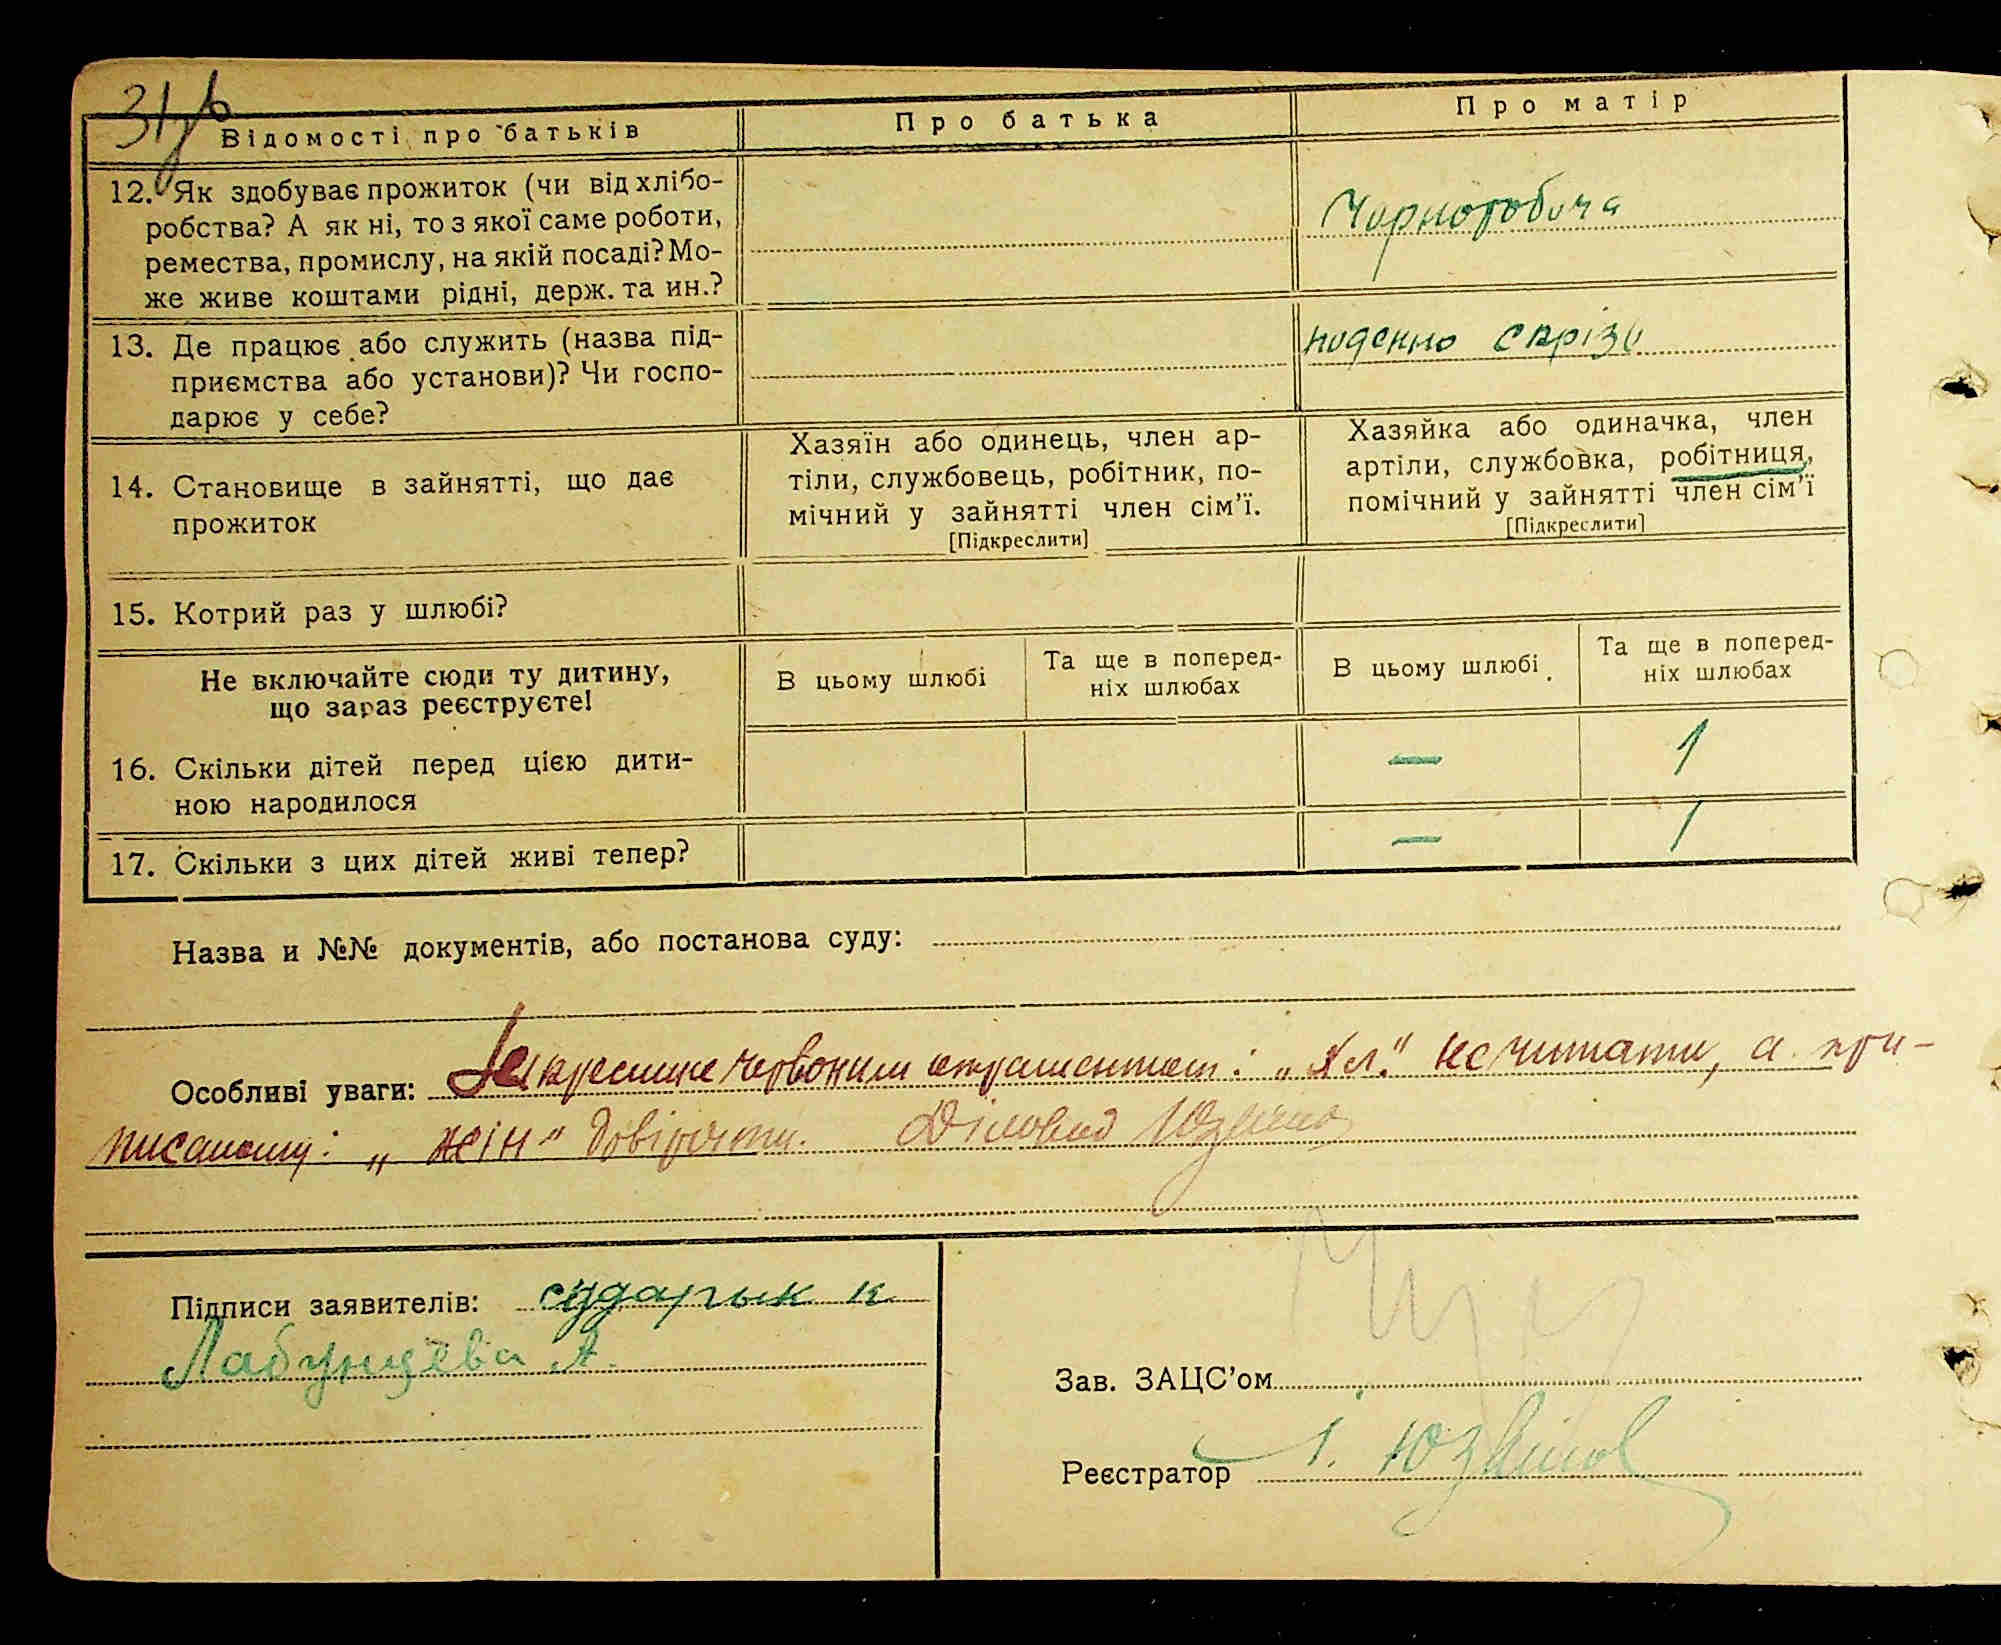 Відомості про батьків
Про батька
Про матір
12. Як здобуває прожиток (чи від хлібо-
робства? А як ні, то з якої саме роботи,
ремества, промислу, на якій посаді? Мо-
же живе коштами рідні, держ. та ин.?
Чорноробоча
13. Де працює або служить (назва під-
приємства або установи)? Чи госпо-
дарює у себе?
поденно скрізь
14. Становище в зайнятті, що дає
прожиток
Хазяїн або одинець, член ар-
тіли, службовець, робітник, по-
мічний у зайнятті член сім'ї.
[Підкреслити]
Хазяйка або одиначка, член
артіли, службовка, робітниця,
помічний у зайнятті член сім'ї
[Підкреслити]
15. Котрий раз у шлюбі?
Не включайте сюди ту дитину,
що зараз реєструєте!
В цьому шлюбі
Та ще в поперед-
ніх шлюбах
В цьому шлюбі
Та ще в поперед-
ніх шлюбах
16. Скільки дітей перед цією дити-
ною народилося
— 1
17. Скільки з цих дітей живі тепер?
— 1
Назва и №№ документів, або постанова суду:
Особливі уваги: Закреслене червоним атраментом: „хл." не читати, а при-
писаному: „жін" довіряти. Діловод
Підписи заявителів: сударык к
Лабунцева А.
Зав. ЗАЦС'ом
Реєстратор І.